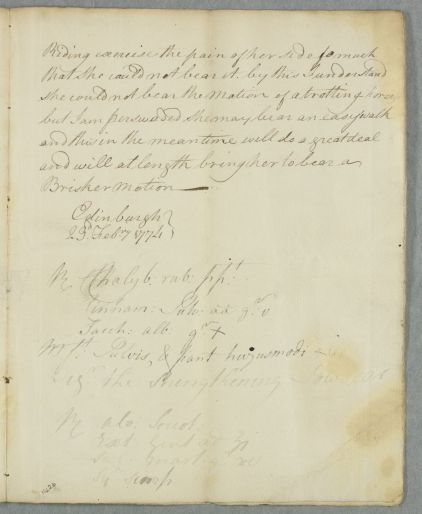 Riding exercise the pain of her side so much
that she could not bear it. by this I understand
she could not bear the Motion of a trotting horse,
but I am perswaded she may bear an easy walk
and this in the mean time will do a great deal
and will at length bring her to bear a
Brisker Motion
Edinburgh
25 Febry 1774
℞ Chalyb: rub: ppt.
Cinnam: Pulv: aa gr v
Sacch: alb: gr x
Mft. Pulvis, & fiant hujusmodi
The Strengthening Powders
℞ alo: Socot:
Ext Gent aa ʒi